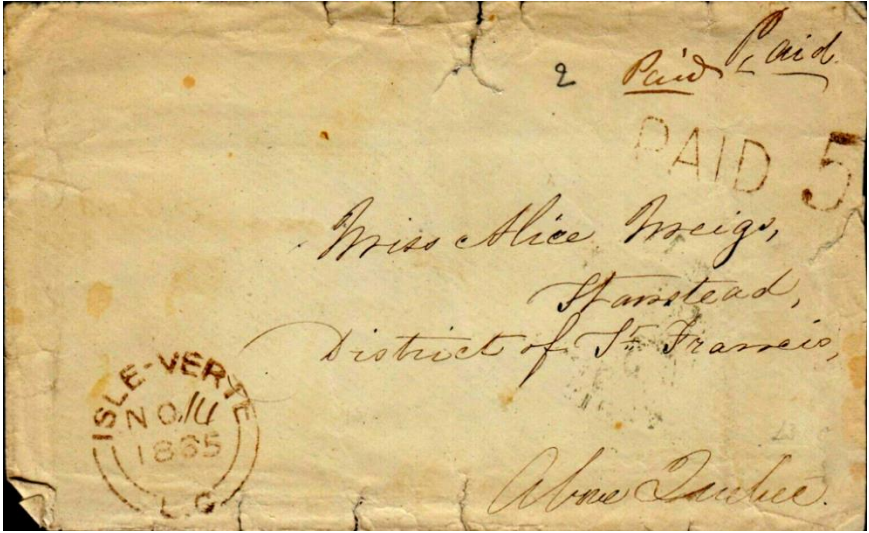 2 Paid Paid.
PAID 5
Miss Alice Meigs,
Stanstead,
District of St Francis,
Above Quebec.
ISLE-VERTE
NO 14
1865
L.C